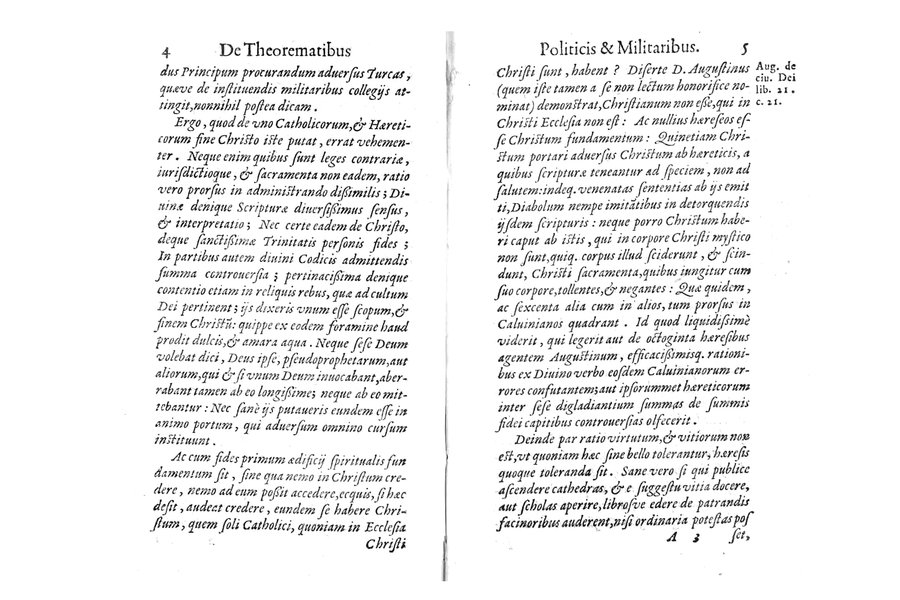 4 De Theorematibus
dus Principum procurandum aduerſus Turcas,
quæve de inſtituendis militaribus collegijs at-
tingit,nonnihil poſtea dicam.
Ergo, quod de vno Catholicorum,& Hæreti-
corum fine Chriſto iſte putat, errat vehemen-
ter. Neque enim quibus ſunt leges contrariæ,
iuriſdictioque, & ſacramenta non eadem, ratio
vero prorſus in adminiſtrando diſſimilis; Di-
uinæ denique Scripturæ diuerſiſſimus ſenſus,
& interpretatio; Nec certe eadem de Chriſto,
deque ſanctiſſimæ Trinitatis perſonis fides;
In partibus autem diuini Codicis admittendis
ſumma controuerſia; pertinaciſſima denique
contentio etiam in reliquis rebus, quæ ad cultum
Dei pertinent; ijs dixeris vnum eſſe ſcopum,&
finem Chriſtū: quippe ex eodem foramine haud
prodit dulcis,& amara aqua. Neque ſeſe Deum
volebat dici, Deus ipſe, pſeudoprophetarum,aut
aliorum,qui & ſi vnum Deum inuocabant,aber-
rabant tamen ab eo longiſſime; neque ab eo mit-
tebantur: Nec ſanè ijs putaueris eundem eſſe in
animo portum, qui aduerſum omnino curſum
inſtituunt.
Ac cum fides primum ædificij ſpiritualis fun
damentum ſit, ſine qua nemo in Chriſtum cre-
dere, nemo ad eum poſſit accedere,ecquis, ſi hæc
deſit, audeat credere, eundem ſe habere Chri-
ſtum, quem ſoli Catholici, quoniam in Eccleſia
Chriſti
Politicis & Militaribus. 5
Chriſti ſunt, habent? Diſerte D. Auguſtinus
(quem iſte tamen a ſe non lectum honorifice no-
minat) demonſtrat,Chriſtianum non eſſe,qui in
Chriſti Eccleſia non eſt: Ac nullius hæreſeos eſ-
ſe Chriſtum fundamentum: Quinetiam Chri-
ſtum portari aduerſus Chriſtum ab hæreticis, a
quibus ſcripturæ teneantur ad ſpeciem, non ad
ſalutem:indeq. venenatas ſententias ab ijs emit
ti,Diabolum nempe imitātibus in detorquendis
ijſdem ſcripturis: neque porro Chriſtum habe-
ri caput ab iſtis, qui in corpore Chriſti myſtico
non ſunt,quiq. corpus illud ſciderunt, & ſcin-
dunt, Chriſti ſacramenta,quibus iungitur cum
ſuo corpore,tollentes,& negantes: Quæ quidem,
ac ſexcenta alia cum in alios,tum prorſus in
Caluinianos quadrant. Id quod liquidiſſimè
viderit, qui legerit aut de octoginta hæreſibus
agentem Auguſtinum, efficaciſſimiſq. rationi-
bus ex Diuino verbo eoſdem Caluinianorum er-
rores confutantem;aut ipſorummet hæreticorum
inter ſeſe digladiantium ſummas de ſummis
fidei capitibus controuerſias olfecerit.
Deinde par ratio virtutum,& vitiorum non
eſt,vt quoniam hæc ſine bello tolerantur, hæreſis
quoque toleranda ſit. Sane vero ſi qui publice
aſcendere cathedras, & e ſuggeſtu vitia docere,
aut ſcholas aperire,libroſve edere de patrandis
facinoribus auderent,niſi ordinaria poteſtas poſ
A 3 ſet,
Aug. de
ciu. Dei
lib. 21.
c. 21.